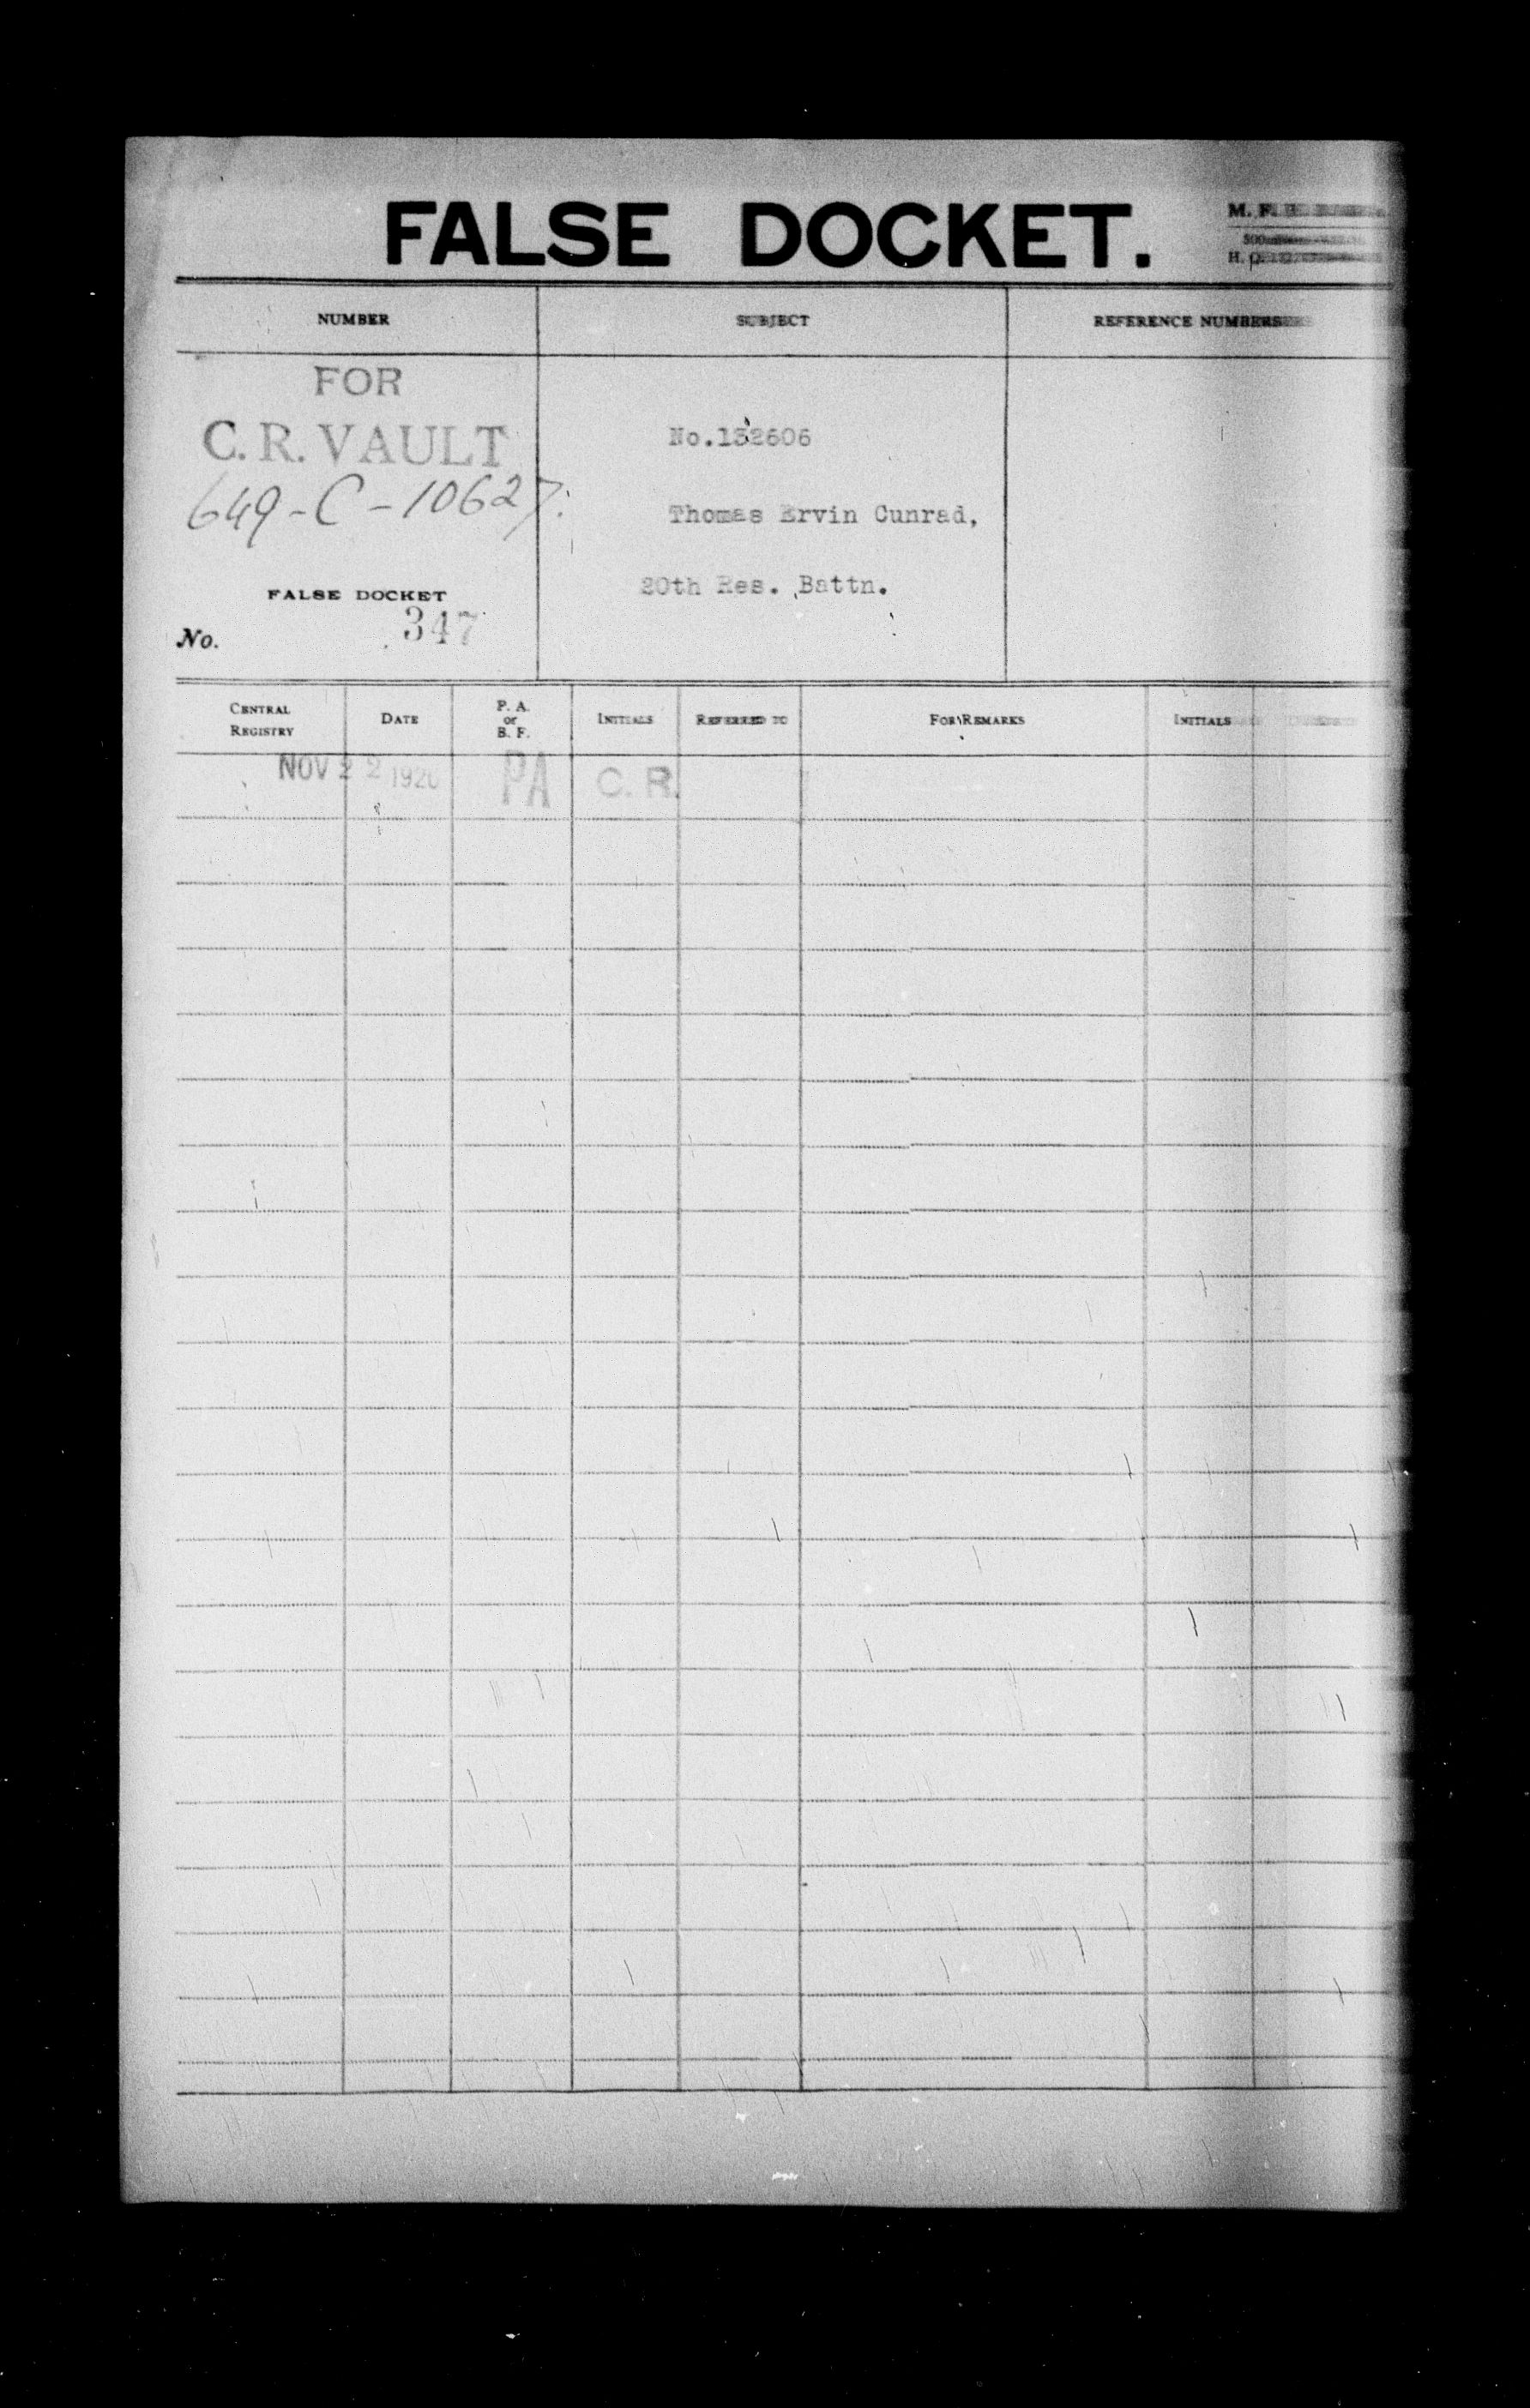 FALSE DOCKET.
M. F.
500
H. Q.
NUMBER SUBJECT REFERENCE NUMBERS
FOR
C. R. VAULT
649-C-10627.
FALSE DOCKET
No. 347
No.132606
Thomas Ervin Cunrad,
20th Res. Battn.
CENTRAL REGISTRY DATE P. A. or B. F. INITIALS REFERRED TO FOR REMARKS INITIALS
NOV 22 1920 PA C. R.